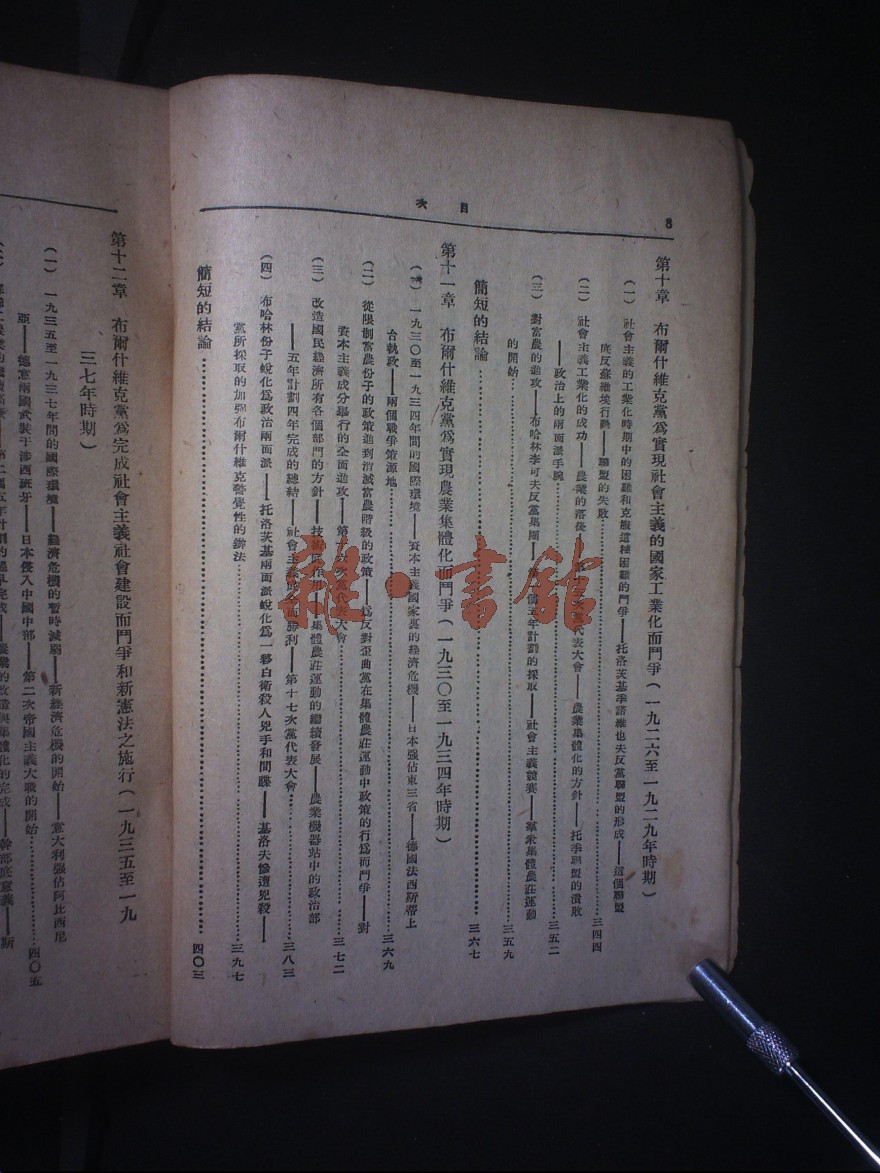 8
目次
第十章 布爾什維克黨爲實現社會主義的國家工業化而鬥爭(一九二六至一九二九年時期)
(一) 社會主義的工業化時期中的困難和克服這種困難的鬥爭——托洛茨基季諾維也夫反黨聯盟的形成——這個聯盟
底反蘇維埃行動——聯盟的失敗…………三四四
(二) 社會主義工業化的成功——農業的落後——第十五次黨代表大會——農業集體化的方針——托季聯盟的潰敗
——政治上的兩面派手腕…………三五二
(三) 對富農的進攻——布哈林李可夫反黨集團——第一個五年計劃的採取——社會主義競賽——羣衆集體農莊運動
的開始…………三五九
簡短的結論…………三六七
第十一章 布爾什維克黨爲實現農業集體化而鬥爭(一九三〇至一九三四年時期)
(一) 一九三〇至一九三四年間的國際環境——資本主義國家裏的經濟危機——日本强佔東三省——德國法西斯蒂上
台執政——兩個戰爭策源地…………三六九
(二) 從限制富農份子的政策進到消滅富農階級的政策——爲反對歪曲黨在集體農莊運動中政策的行爲而鬥爭——對
資本主義成分舉行的全面進攻——第十六次黨代表大會…………三七二
(三) 改造國民經濟所有各個部門的方針——技術底作用——集體農莊運動的繼續發展——農業機器站中的政治部
——五年計劃四年完成的總結——社會主義的全面勝利——第十七次黨代表大會…………三八三
(四) 布哈林份子蛻化爲政治兩面派——托洛茨基兩面派蛻化爲一夥白衛殺人兇手和間諜——基洛夫慘遭兇殺——
黨所採取的加强布爾什維克警覺性的辦法…………三九七
簡短的結論…………四〇三
第十二章 布爾什維克黨爲完成社會主義社會建設而鬥爭和新憲法之施行(一九三五至一九
三七年時期)
(一) 一九三五至一九三七年間的國際環境——經濟危機的暫時減弱——新經濟危機的開始——意大利强佔阿比西尼
亞——德意兩國武裝干涉西班牙——日本侵入中國中部——第二次帝國主義大戰的開始…………四〇五
雜·書館